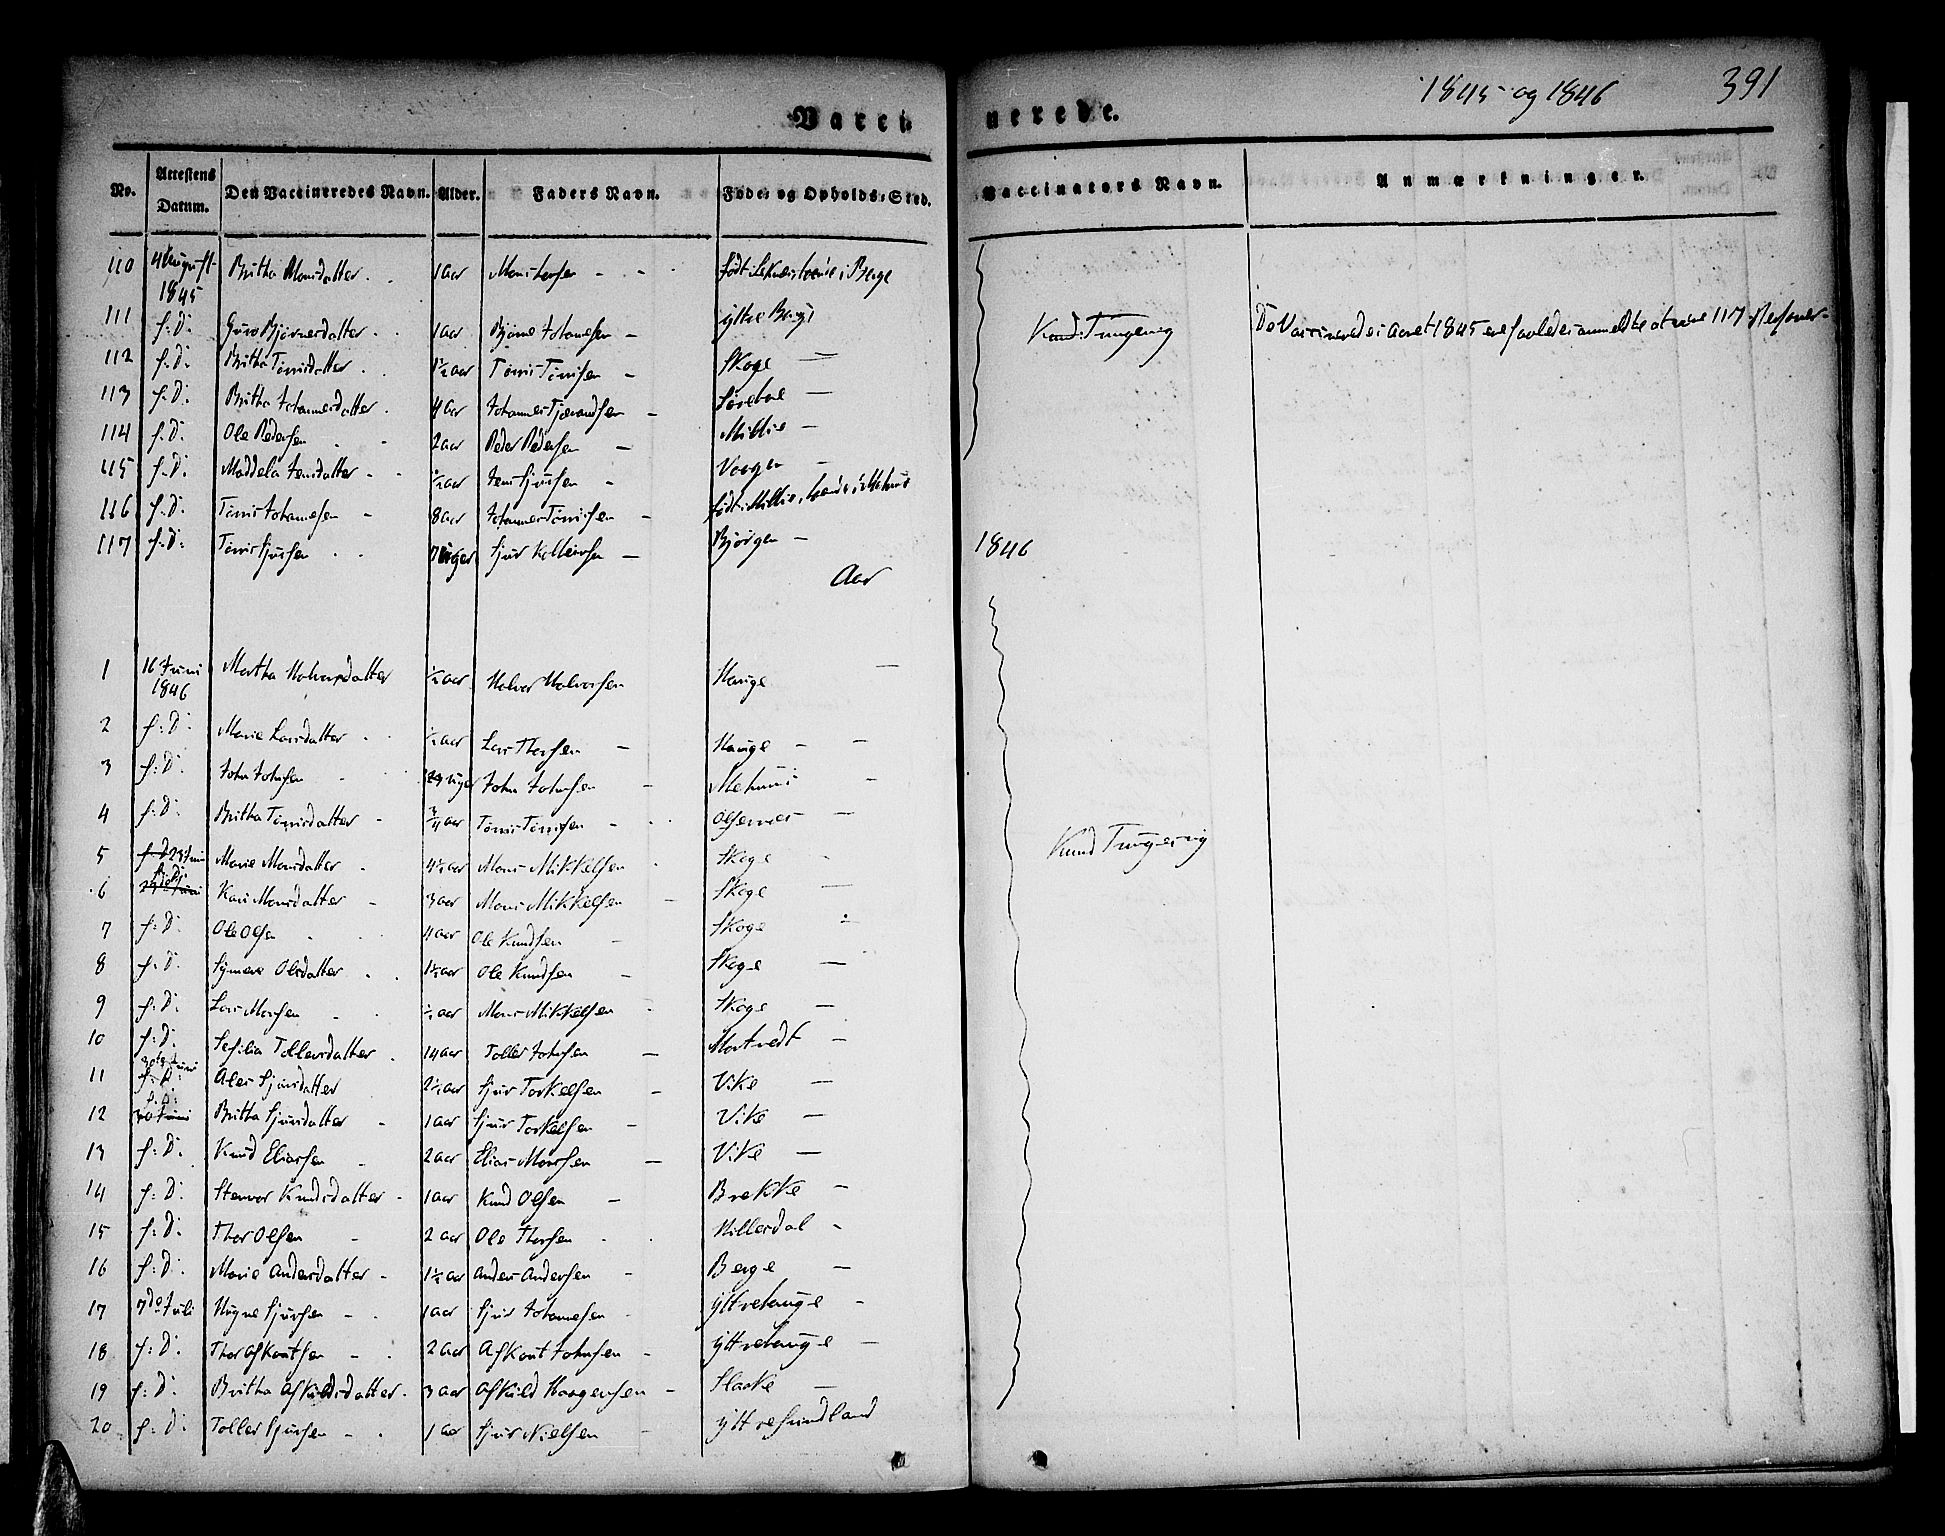 1845 og 1846 391
Vacci nerede.
No. Attestens Datum. Den Vaccineredes Navn. Alder. Faders Navn. Føde- og Opholds-Sted. Vaccinators Navn. Anmærkninger.
110 4 August 1845 Britha Monsdatter 1 aar Mons født i Berge
111 s: D: Guro Bjørnesdatter 1 aar Bjørne Johannesen ijttre Berge
Knud Tungesvig De Vaccinerede i Aaret 1845 ere saaledes anmeldte at være 117 Personer
112 s: D: Britha Tønnisdatter 1½ aar Tønnis Tønnisen Skoge —
113 s: D: Britha Johannesdatter 4 aar Johannes —
114 s: D: Ole Pedersen 2 aar Peder Pedersen Miklie —
115 s: D: Maddela Jensdatter ½ aar Jens Sjursen Vaagen —
116 s: D: Tønnis Johannesen 8 aar Johannes Tønnisen født i Miklie, i Mehuus
117 s: D: Tønnis Sjursen 7 Uger Sjur Bjørgen —
Aar 1846
1 16 Juni 1846 Martha Halvorsdatter ½ aar Halvor Halvorsen Hauge —
2 s: D: Marie Larsdatter ½ aar Lars Thorsen Hauge —
3 s: D: John Johnsen Uger John Johnsen Mehuus —
4 s: D: Britha Tønnisdatter ¾ aar Tønnis Tønnisen Olsernes —
5 23 Juni Marie Monsdatter 4½ aar Mons Mikkelsen Skoge
Knud Tungesvig
6 s: D: Kari Monsdatter 3 aar Mons Mikkelsen Skoge —
7 s: D: Ole Olsen 4 aar Ole Knudsen Skoge —
8 s: D: Synneve Olsdatter 1½ aar Ole Knudsen Skoge —
9 s: D: Lars Monsen ½ aar Mons Mikkelsen Skoge —
10 s: D: Sesilia Tollevsdatter 14 aar Tollev Johnsen Mortvedt —
11 30te Juni Ales Sjursdatter 2½ aar Sjur Torkelsen Vike —
12 s: D: Britha Sjursdatter 1 aar Sjur Torkelsen Vike —
13 s: D: Knud Eliassen 2 aar Elias Monsen Vike —
14 s: D: Stenvor Knudsdatter 1 aar Knud Olsen Brekke —
15 s: D: Thor Olsen 2 aar Ole Thorsen Hillerdal —
16 s: D: Marie Andersdatter 1½ aar Anders Andersen Berge —
17 7de Juli Hogne Sjursen 1 aar Sjur Johannesen ijttrehauge —
18 s: D: Thor Afkoutsen 2 aar Afkout Johnsen ijttrehauge —
19 s: D: Britha Afkildsdatter 3 aar Afkild Haagensen Slaake —
20 s: D: Tollev Sjursen 1 aar Sjur Nielsen ijttresundland